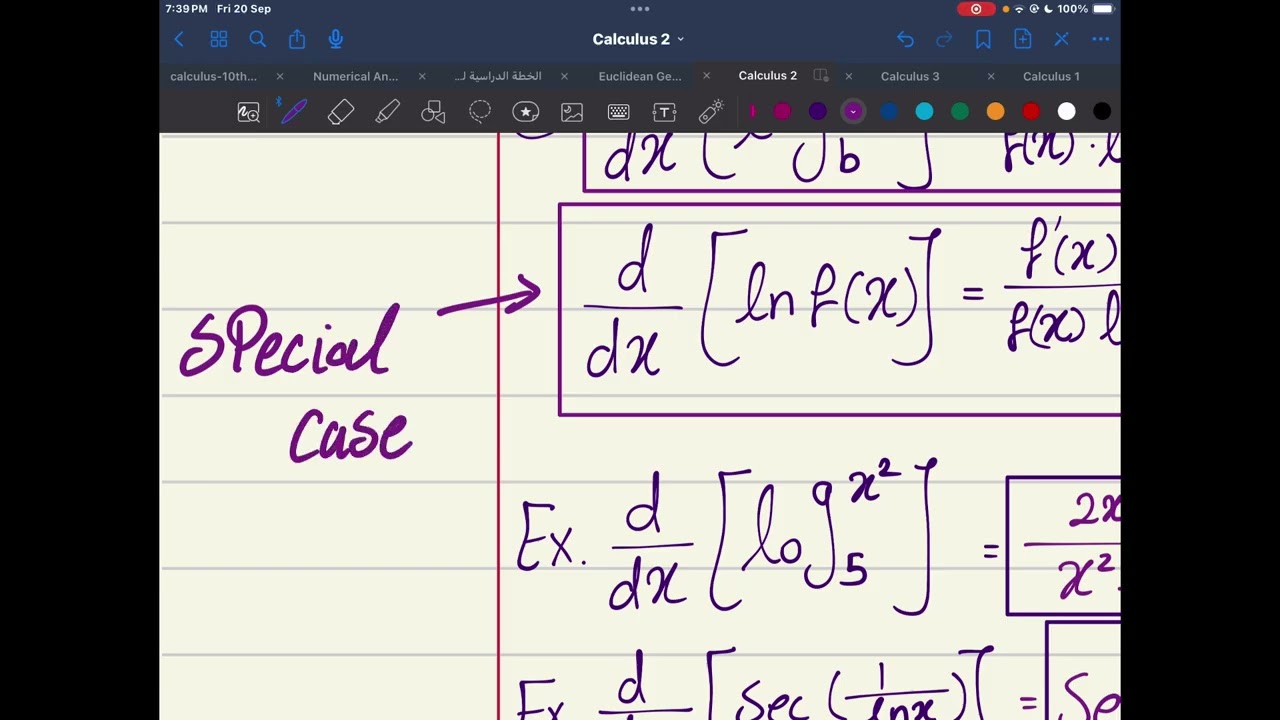 7:39 PM Fri 20 Sep
100%
Calculus 2
calculus-10th...
Numerical An...
الخطة الدراسية لـ...
Euclidean Ge...
Calculus 2
Calculus 3
Calculus 1
d/dx [ln f(x)] = f'(x)/f(x) l
SPecial
case
Ex. d/dx [log₅ x²] = 2x/x².
Ex d [sec (1/lnx)] = Se